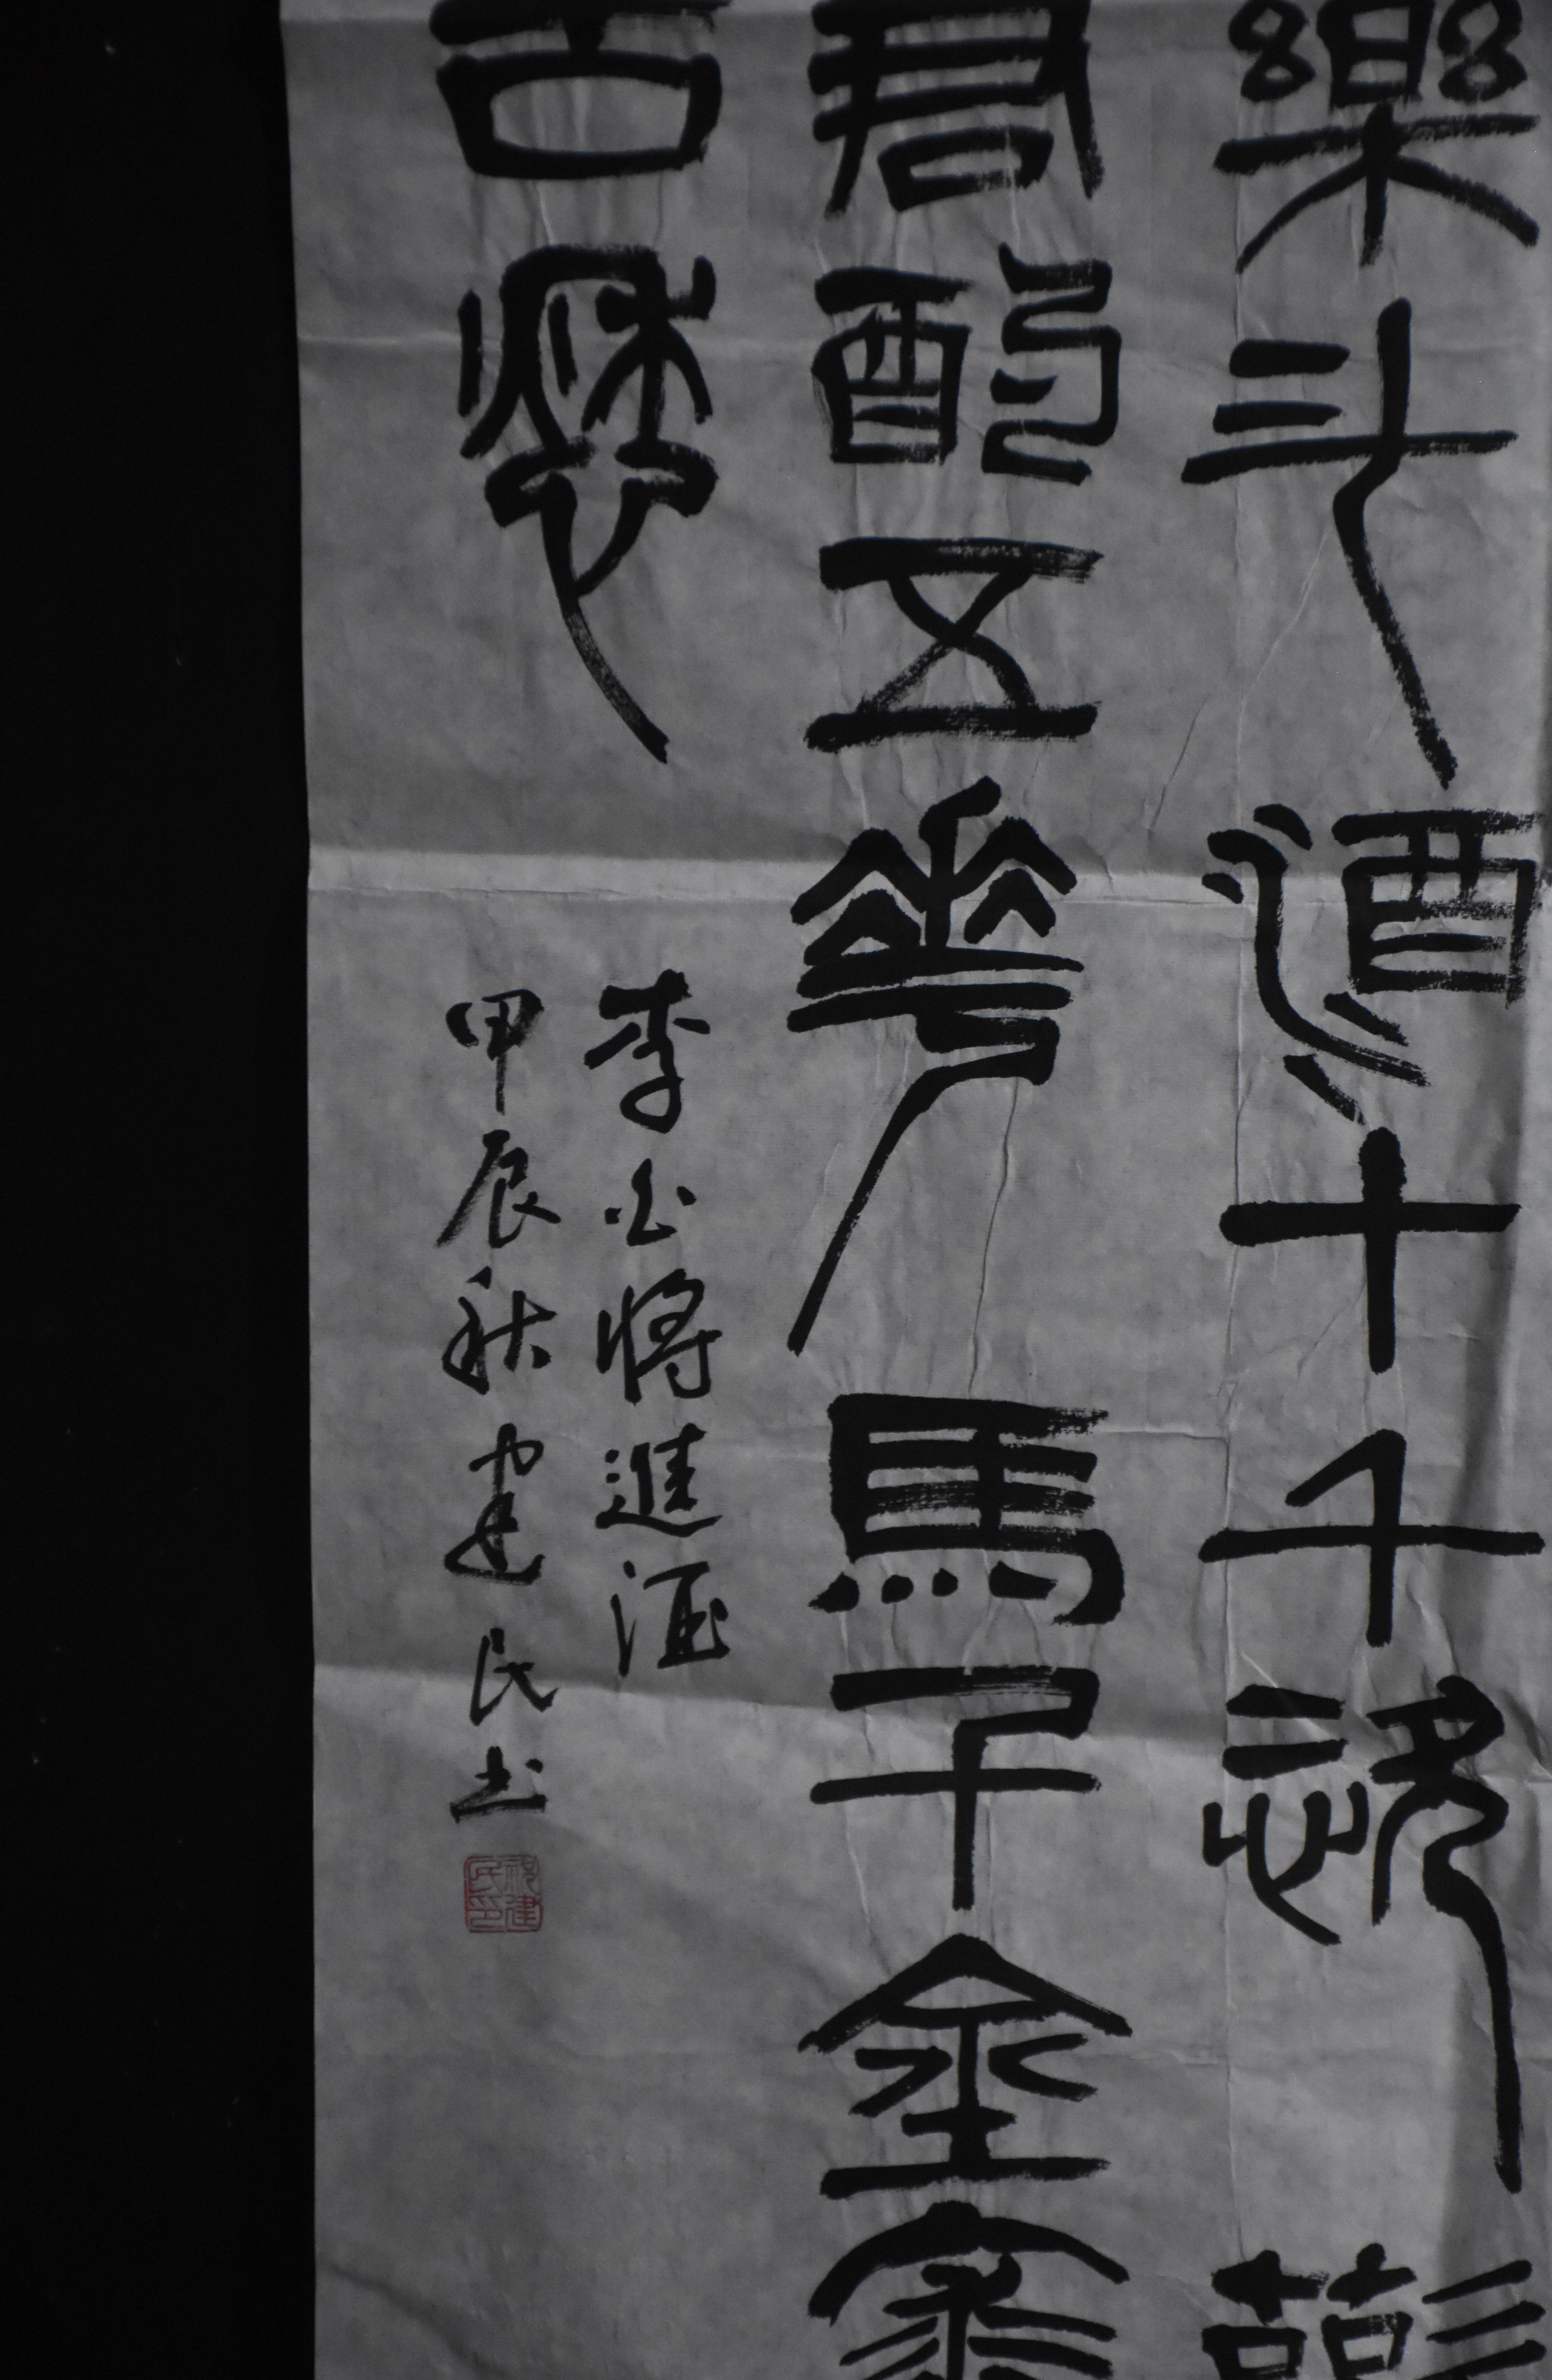 樂斗酒十千恣
君酌五華馬千金裘
古愁
李白將進酒
甲辰秋建民书
祝建民印